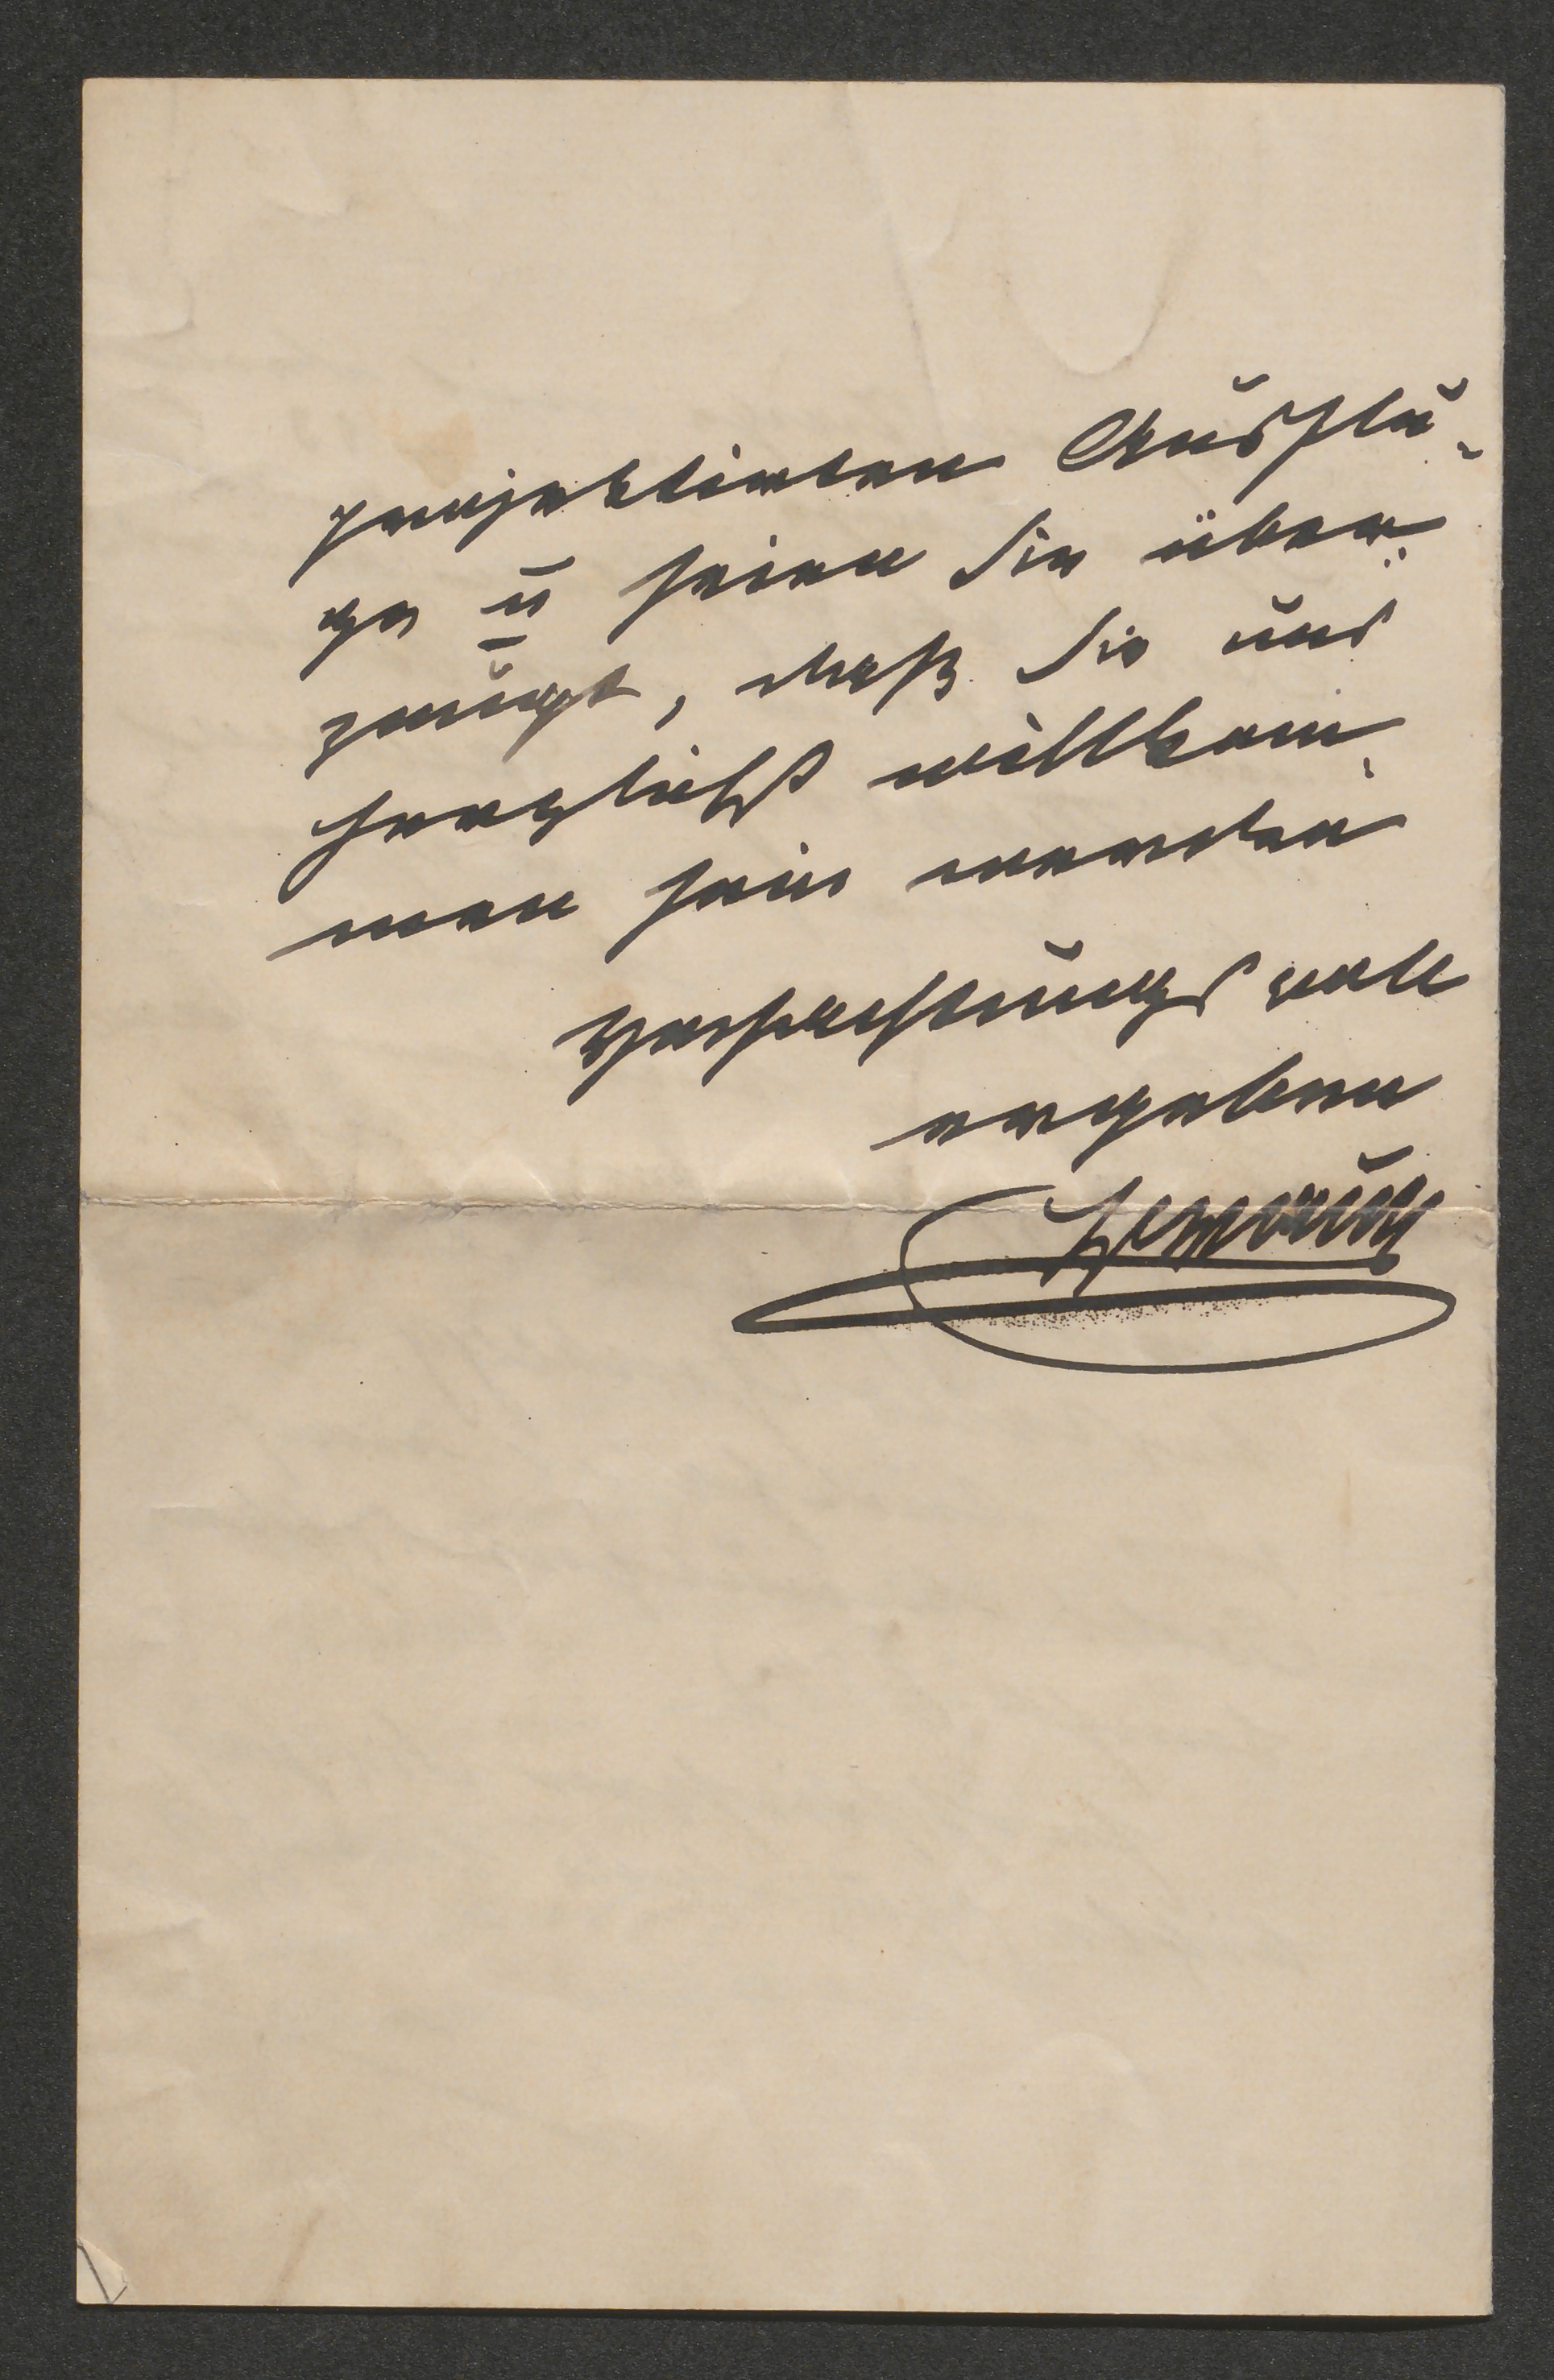 projektierten Ausflu-
ge u seien Sie über-
zeugt, daß Sie uns
herzlichst willkom-
men sein werden
Hochachtungsvoll
ergeben